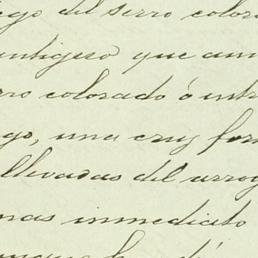 ego del serro colora
antigero que am
rro colorado ó intr
go, una cruz for
llevadas del arroy
mas inmediato